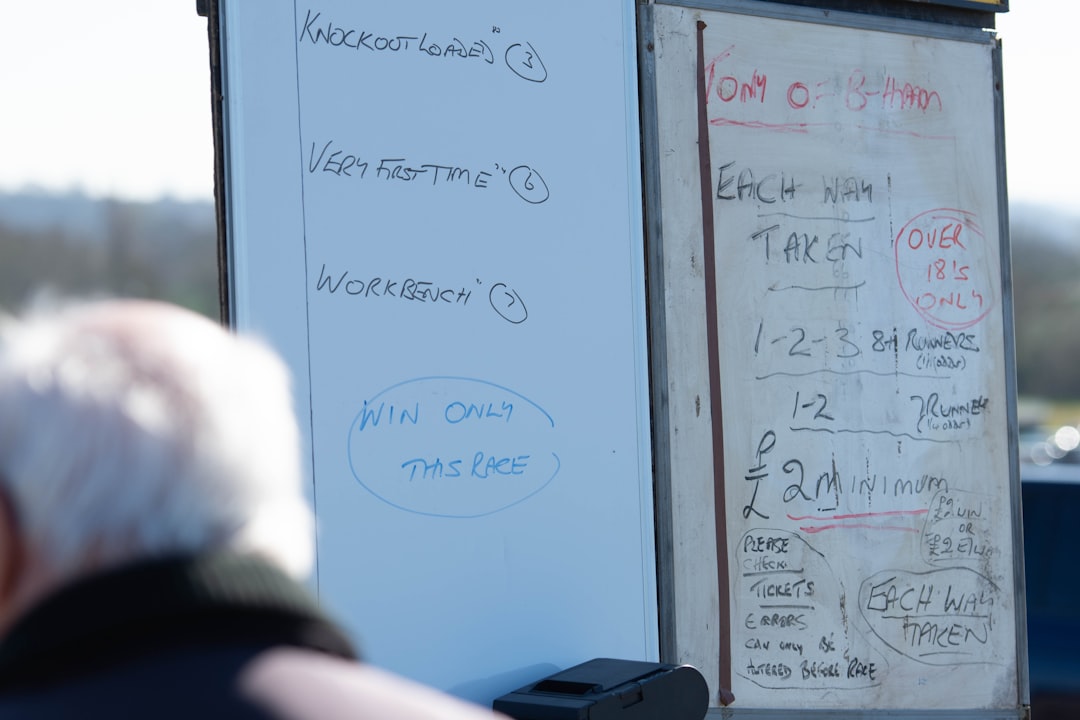 KNOCKOUT LOADED" 3
VERY FIRST TIME" 6
WORKBENCH" 7
WIN ONLY
THIS RACE
TONY OF B-HAM
EACH WAY
TAKEN
OVER
18'S
ONLY
1-2-3 8+ RUNNERS
1-2 7 RUNNER
£2 MINIMUM
£2 WIN
OR
£2 E/W
PLEASE
CHECK
TICKETS
ERRORS
CAN ONLY BE
ALTERED BEFORE RACE
EACH WAY
TAKEN